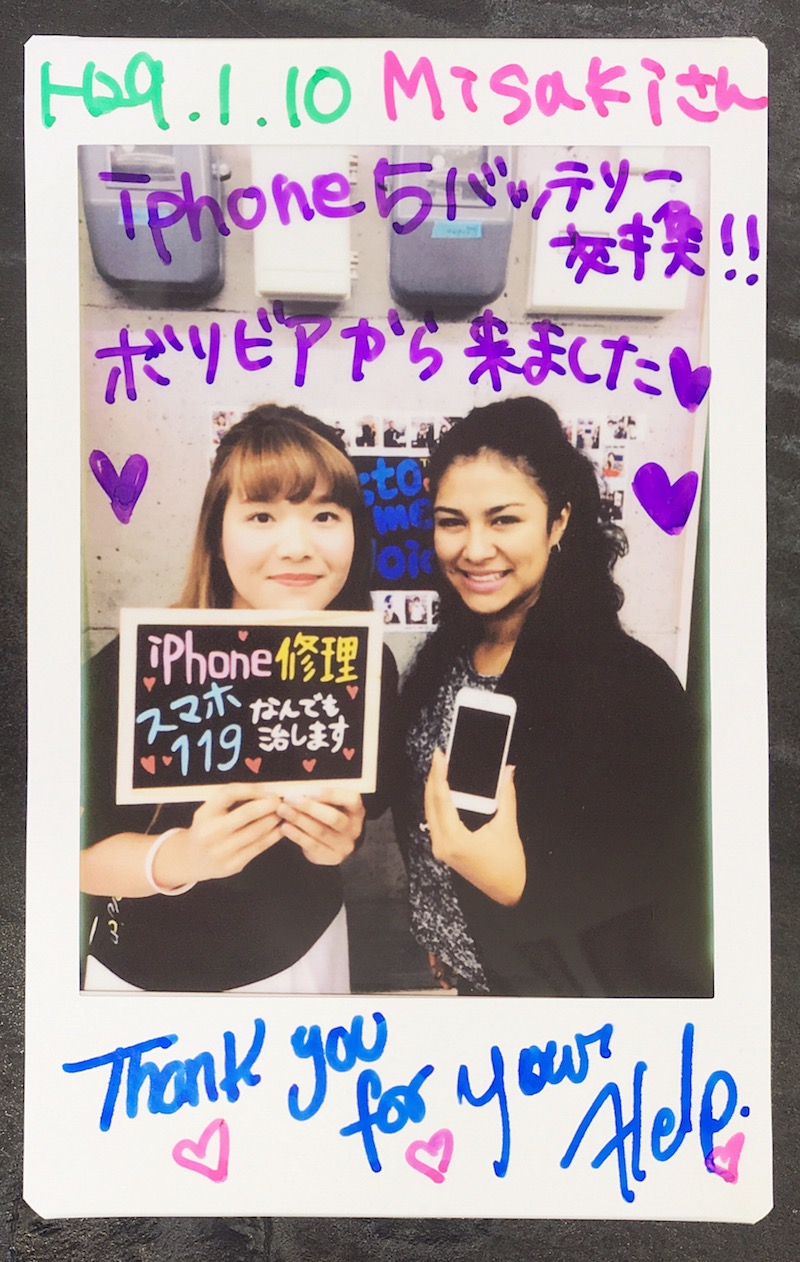 H29.1.10 Misakiさん
iphone5バッテリー
交換!!
ボリビアから来ました
iPhone修理
スマホ なんでも
119 治します
Thank you
for your
Help.